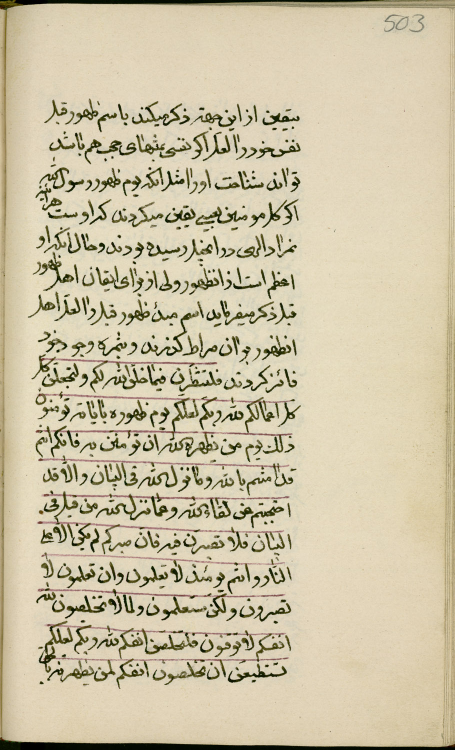 503
بیقین از این جهته ذکر میکند باسم ظهور قبل
نفس خود را لعل اگر نفسی بمنتهای حجب هم باشد
تواند شناخت او را مثل انکه یوم ظهور رسول الله
اگر کل مومنین بعیسی یقین میکردند که اوست هر اینه
مراد الهی در انجیل رسیده بودند و حال انکه او
اعظم است از انظهور ولی از برای ایقان اهل ظهور
قبل ذکر میفرماید اسم مبدء ظهور قبل را لعل اهل
انظهور بر ان صراط گذرند و بثمره وجود خود
فائز گردند فلتنظرن فیما خلق الله لکم ولتجعلن کل
کل اعمالکم لله ربکم لعلکم یوم ظهوره بایاته تؤمنون
ذلک یوم من یظهره الله ان تؤمنن به فانکم انتم
قد امنتم بالله وما نزل الله فی البیان والا قد
احتجبتم عن لقاء الله وعما نزل الله من قبل فی
البیان فلا تصبرن فیه فان صبرکم لم یکن الا علی
النار وانتم یومئذ لا تعلمون وان تعلمون لا
تصبرون ولکن ستعلمون ولما لا تخلصون لله
انفسکم لا توقنون فلتخلصن انفسکم لله ربکم لعلکم
تستطیعن ان تخلصون انفسکم لمن یظهره الله